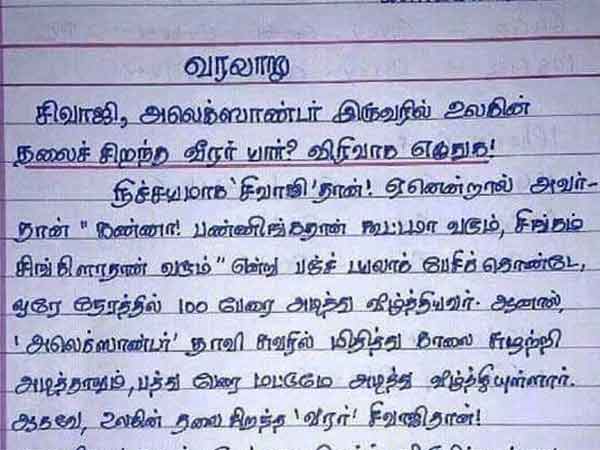 வரலாறு
சிவாஜி, அலெக்ஸாண்டர் இருவரில் உலகின்
தலைச் சிறந்த வீரர் யார்? விரிவாக எழுதுக!
நிச்சயமாக 'சிவாஜி' தான்! ஏனென்றால் அவர்-
தான் "கண்ணா! பண்ணிங்கதான் கூட்டமா வரும், சிங்கம்
சிங்கிளாதான் வரும்" என்று பஞ்ச் டயலாக் பேசிக்கொண்டே,
ஒரே நேரத்தில் 100 பேரை அடித்து வீழ்த்தியவர். ஆனால்,
'அலெக்ஸாண்டர்' தாவி சுவரில் மிதித்து காலை சுழற்றி
அடித்தாலும், பத்து பேரை மட்டுமே அடித்து வீழ்த்தியுள்ளார்.
ஆகவே, உலகின் தலைசிறந்த 'வீரர்' சிவாஜிதான்!